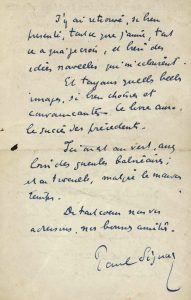 J'y ai retrouvé, si bien
présenté, tout ce que j'aime, tout
ce que je crois, et bien des
idées nouvelles qui m'éclairent.
Et toujours quelles belles
images, si bien choisies et
convaincantes. Ce livre aura
le succès des précédents.
Ici on est au vert,
loin des gueules balnéaires
et on travaille, malgré le mauvais
temps.
De tout coeur nous vous
adressons nos bonnes amitiés.
Paul Signac